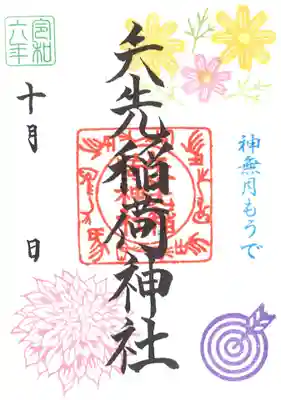 神無月もうで
矢先稲荷神社
令和
六年
十月 日